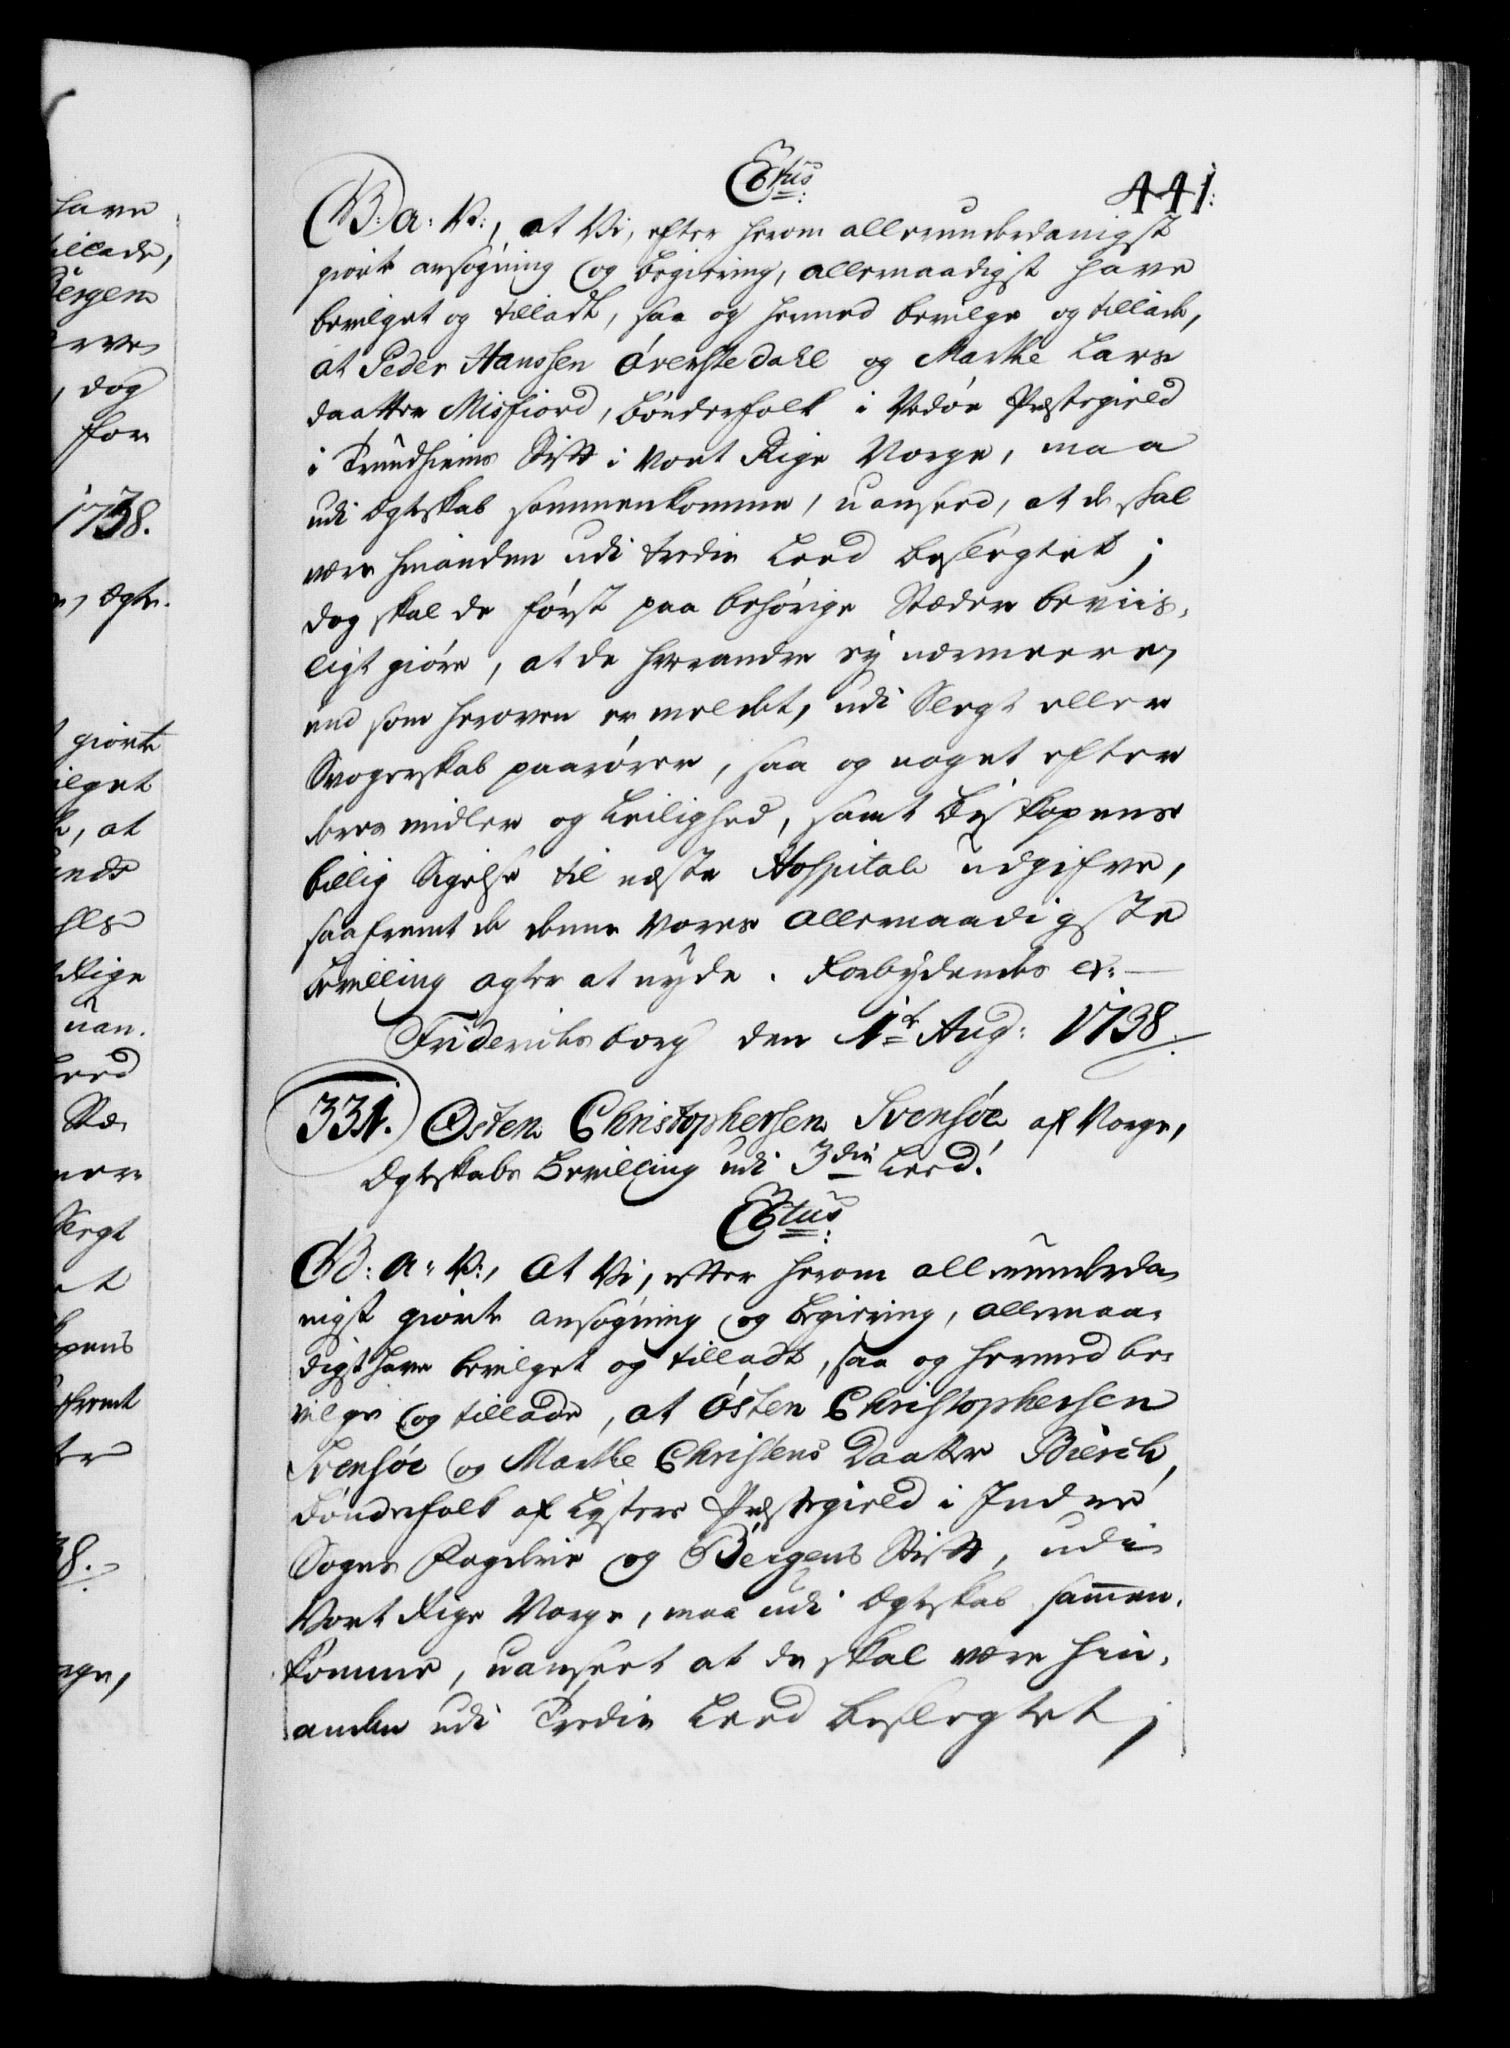 have
tillade,
Bergens
, dog
for
1738.
, Ægte-
giorte
vilget
, at
Rige
uan-
Leed
Stæ-
Slegt
fremt
441.
C6tus
G: A: V:, at Vi, efter herom allerunderdanigst
giorte ansøgning og begiering, allernaadigst have
bevilget og tilladt, saa og hermed bevilge og tillade,
at Peder Hanssen Øverstedahl og Marthe Lars
daatter Misfiord, bønderfolk i Vedøe Præstegield
i Trundhiems Stift i Vort Rige Norge, maa
udi Ægteskab sammenkomme, uanseed, at de skal
være hinanden udi tredie Leed beslegtet;
dog skal de først paa behørige Stæder beviis-
ligt giøre, at de hverandre ej nærmeere,
end som heroven er meldet, udi Slegt eller
Svogerskab paarører, saa og noget efter
deres midler og Leilighed, samt Biskopens
billig Sigelse til næste Hospital udgifve,
saafremt de denne Vores allernaadigste
Bevilling agter at nyde. Forbydendes etc:
Friderichsborg den 1te Aug: 1738.
331. Østen Christophersen Svensøe af Norge,
Ægteskabs Bevilling udi 3die Leed.
C6tus
G: A: V:, at Vi, efter herom allerunderda-
nigst giorte ansøgning og begiering, allernaa-
digst have bevilget og tilladt, saa og hermed be-
vilge og tillade, at Østen Christophersen
Svensøe og Marthe Christens Daatter Bierch,
bønderfolk af Lysters Præstegield i Indre
Sogns Fogderie og Bergens Stift, udi
Vort Rige Norge, maa udi Ægteskab sammen-
komme, uanseet at de skal være hin-
anden udi Tredie Leed beslegtet;